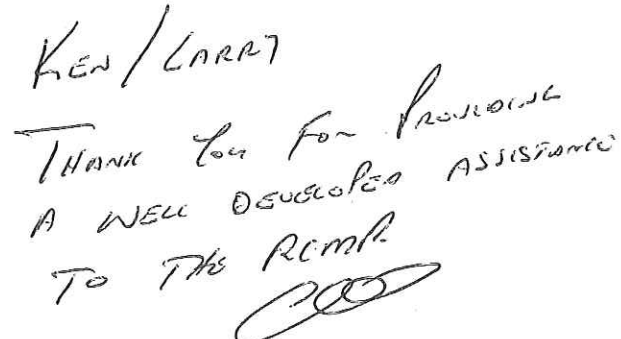 KEN / LARRY
THANK YOU FOR PROVIDING
A WELL DEVELOPED ASSISTANCE
TO THE RCMP.